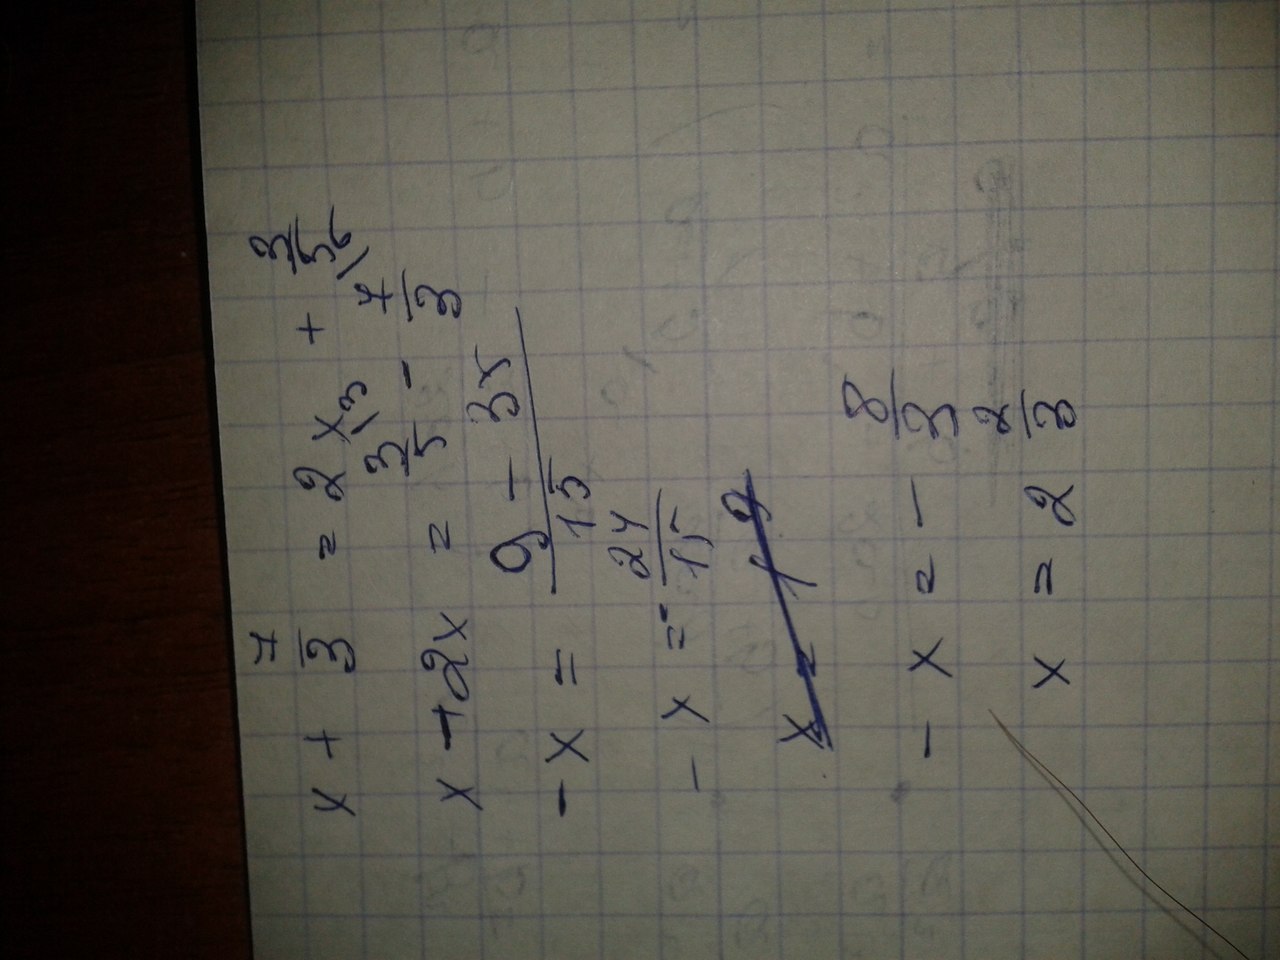 x + 7/3 = 2x + 3/5
x - 2x = 3/5 - 7/3
-x = 9 - 35/15
-x = -24/15
-x = - 8/3
x = 2 2/3